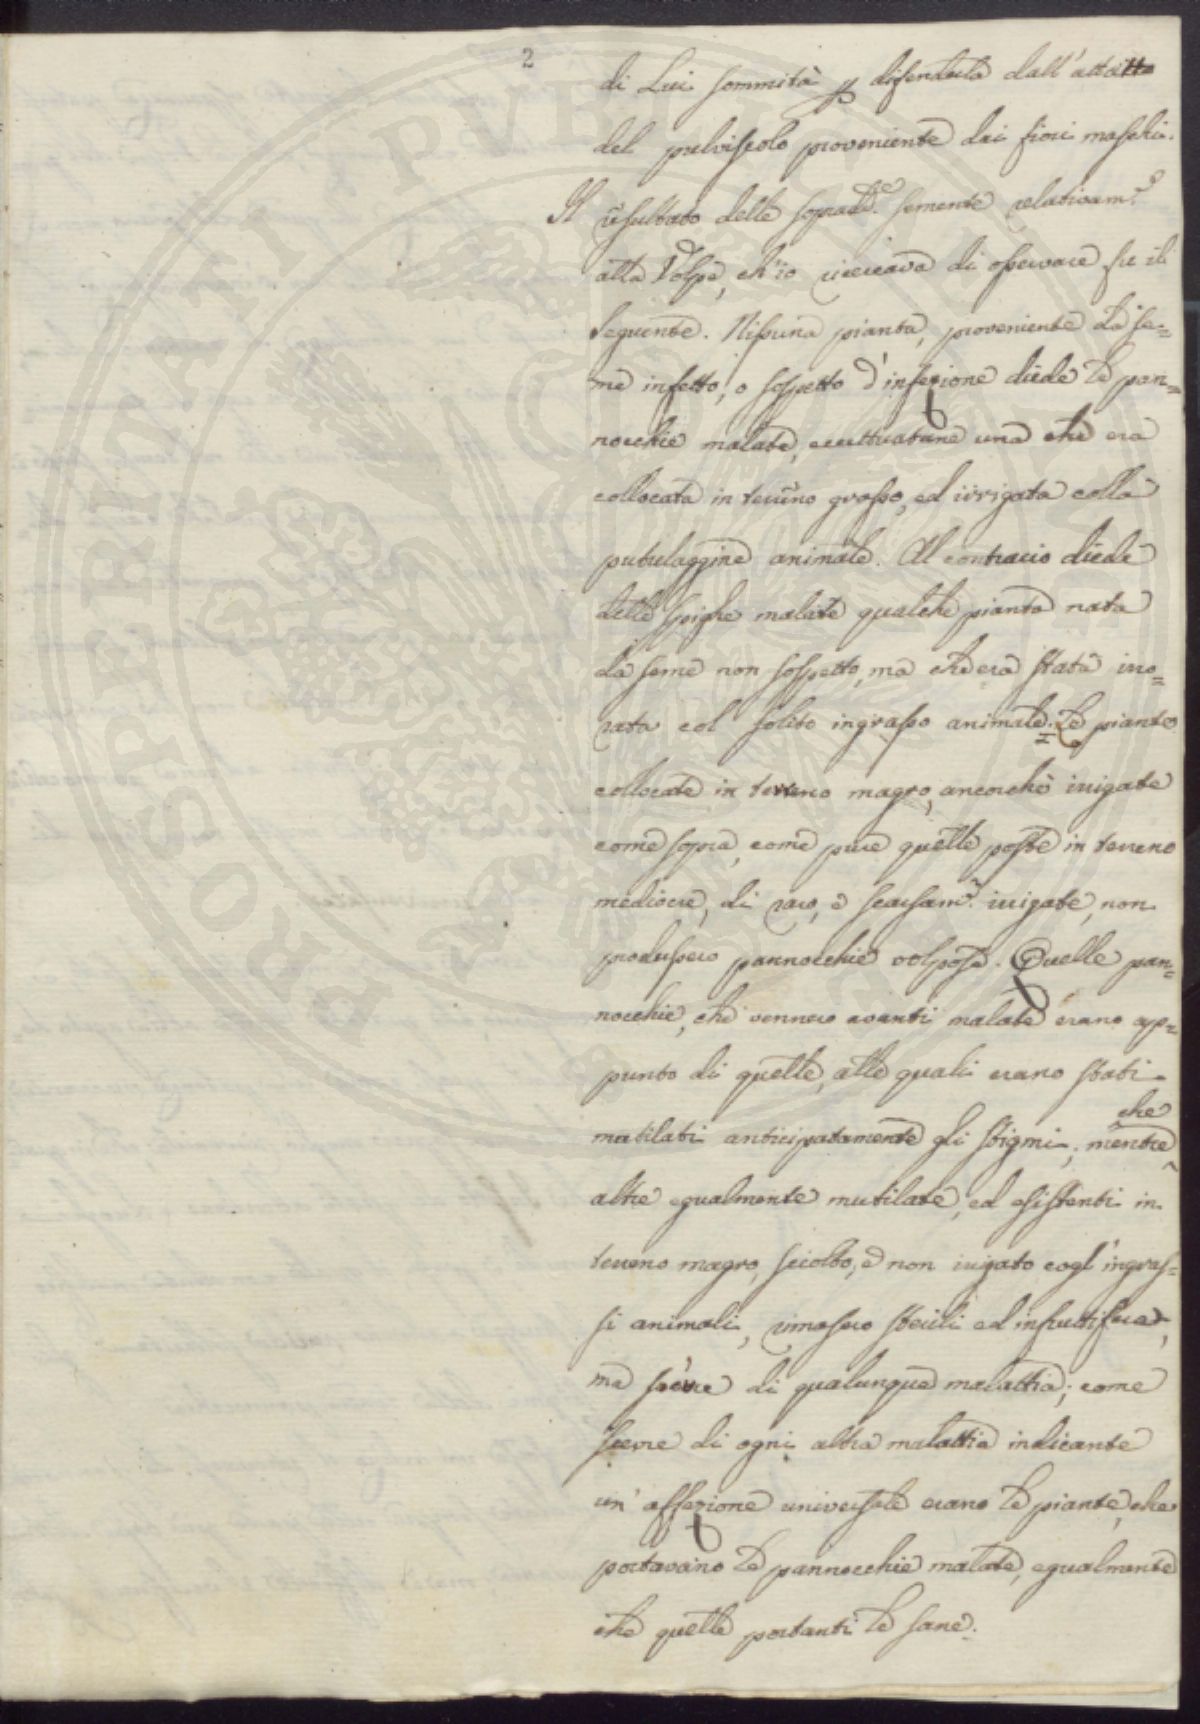 2
di Lui sommità p difenderla dall'attatto
del pulviscolo proveniente dai fiori maschi.
Il risultato delle sopradde. semente relativam.e
alla Volpe, ch'io cercava di osservare fu il
seguente. Nissuna pianta, proveniente da se=
me infetto, o sospetto d'infezione diede le pan=
nocchie malate, eccettuatane una che era
collocata in terreno grasso, ed irrigata colla
putrelaggine animale. Al contrario diede
delle spighe malate qualche pianta nata
da seme non sospetto, ma che era stata irro=
rata col solito ingrasso animale. Le piante
collocate in terreno magro, ancorchè irrigate
come sopra, come pure quelle poste in terreno
mediocre, di raro, e scarsam.e irrigate, non
produssero pannocchie volpose. Quelle pan=
nocchie, che vennero avanti malate erano ap=
punto di quelle, alle quali erano stati
mutilati anticipatamente gli stigmi; mentre
che
altre egualmente mutilate, ed esistenti in
terreno magro, sciolto, e non irrigato cogl'ingras=
si animali, rimasero sterili ed infruttifere,
ma scevre di qualunque malattia; come
scevre di ogni altra malattia indicante
un' affezione universale erano le piante, che
portavano le pannocchie malate, egualmente
che quelle portanti le sane.
PROSPERITATI PVBLICAE